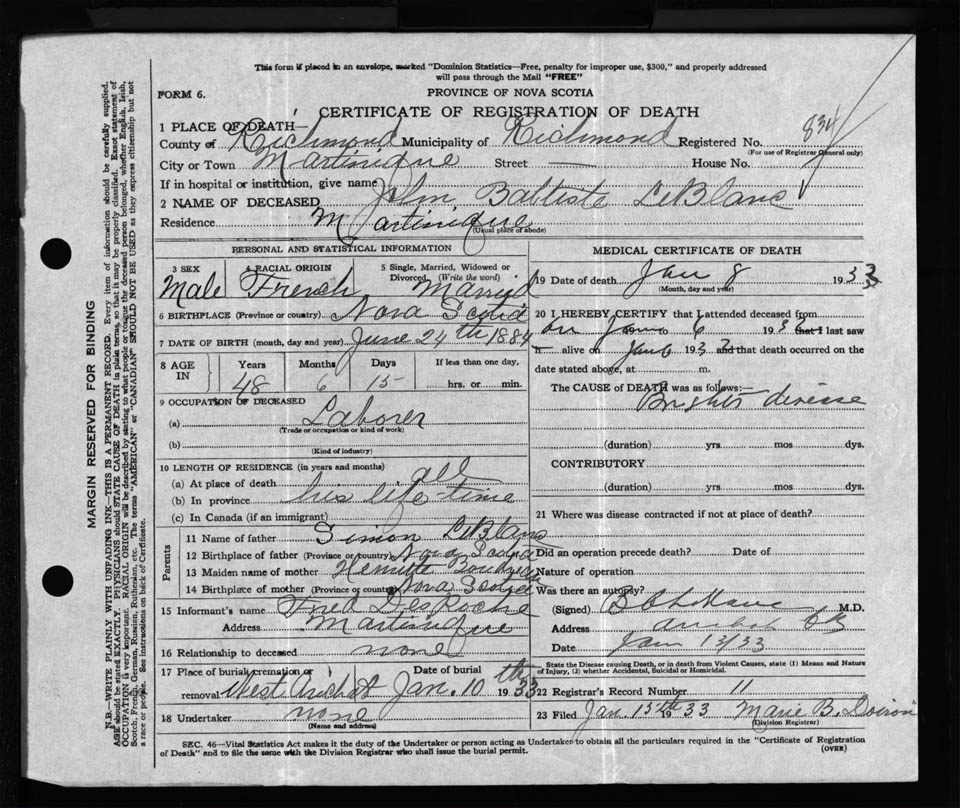 This form if placed in an envelope, marked "Dominion Statistics—Free, penalty for improper use, $300," and properly addressed
will pass through the Mail "FREE"
FORM 6.
PROVINCE OF NOVA SCOTIA
CERTIFICATE OF REGISTRATION OF DEATH
1 PLACE OF DEATH—
County of Richmond Municipality of Richmond Registered No. 834
(For use of Registrar General only)
City or Town Martinique Street — House No.
If in hospital or institution, give name
2 NAME OF DECEASED John Babtiste LeBlanc
Residence Martinique
(Usual place of abode)
PERSONAL AND STATISTICAL INFORMATION
3 SEX Male
4 RACIAL ORIGIN French
5 Single, Married, Widowed or Divorced (Write the word) Married
6 BIRTHPLACE (Province or country) Nova Scotia
7 DATE OF BIRTH (month, day and year) June 24th 1884
8 AGE IN Years 48 Months 6 Days 15 If less than one day, hrs. or min.
9 OCCUPATION OF DECEASED
(a) Laborer
(Trade or occupation or kind of work)
(b)
(Kind of industry)
10 LENGTH OF RESIDENCE (in years and months)
(a) At place of death all
(b) In province his life-time
(c) In Canada (if an immigrant)
Parents
11 Name of father Simon LeBlanc
12 Birthplace of father (Province or country) Nova Scotia
13 Maiden name of mother
14 Birthplace of mother (Province or country) Nova Scotia
15 Informant's name Fred DesRoche
Address Martinique
16 Relationship to deceased none
17 Place of burial, cremation or removal West Arichat Date of burial Jan. 10th 1933
18 Undertaker none
(Name and address)
MEDICAL CERTIFICATE OF DEATH
19 Date of death Jan 8 1933
(Month, day and year)
20 I HEREBY CERTIFY that I attended deceased from
on 6 193 that I last saw
h alive on Jan 6 193 and that death occurred on the
date stated above, at m.
The CAUSE of DEATH was as follows:—
Brights disease
(duration) yrs. mos dys.
CONTRIBUTORY
(duration) yrs. mos. dys.
21 Where was disease contracted if not at place of death?
Did an operation precede death? Date of
Nature of operation
Was there an autopsy?
(Signed) M.D.
Address Arichat CB
Date Jan 13/33
State the Disease causing Death, or in death from Violent Causes, state (1) Means and Nature
of Injury, (2) whether Accidental, Suicidal or Homicidal.
22 Registrar's Record Number 11
23 Filed Jan. 15th 1933 Marie B. Doiron
(Division Registrar)
SEC. 46—Vital Statistics Act makes it the duty of the Undertaker or person acting as Undertaker to obtain all the particulars required in the "Certificate of Registration
of Death" and to file the same with the Division Registrar who shall issue the burial permit.
(OVER)
MARGIN RESERVED FOR BINDING
N.B.—WRITE PLAINLY WITH UNFADING INK—THIS IS A PERMANENT RECORD. Every item of information should be carefully supplied.
AGE should be stated EXACTLY. PHYSICIANS should STATE CAUSE OF DEATH in plain terms, so that it may be properly classified. Exact statement of
OCCUPATION is very important. RACIAL ORIGIN will be described by stating to what people or tongue the deceased person belonged, whether English, Irish,
Scotch, French, German, Russian, Ruthenian, etc. The terms "AMERICAN" or "CANADIAN" SHOULD NOT BE USED as they express citizenship but not
a race or people. See instructions on back of Certificate.